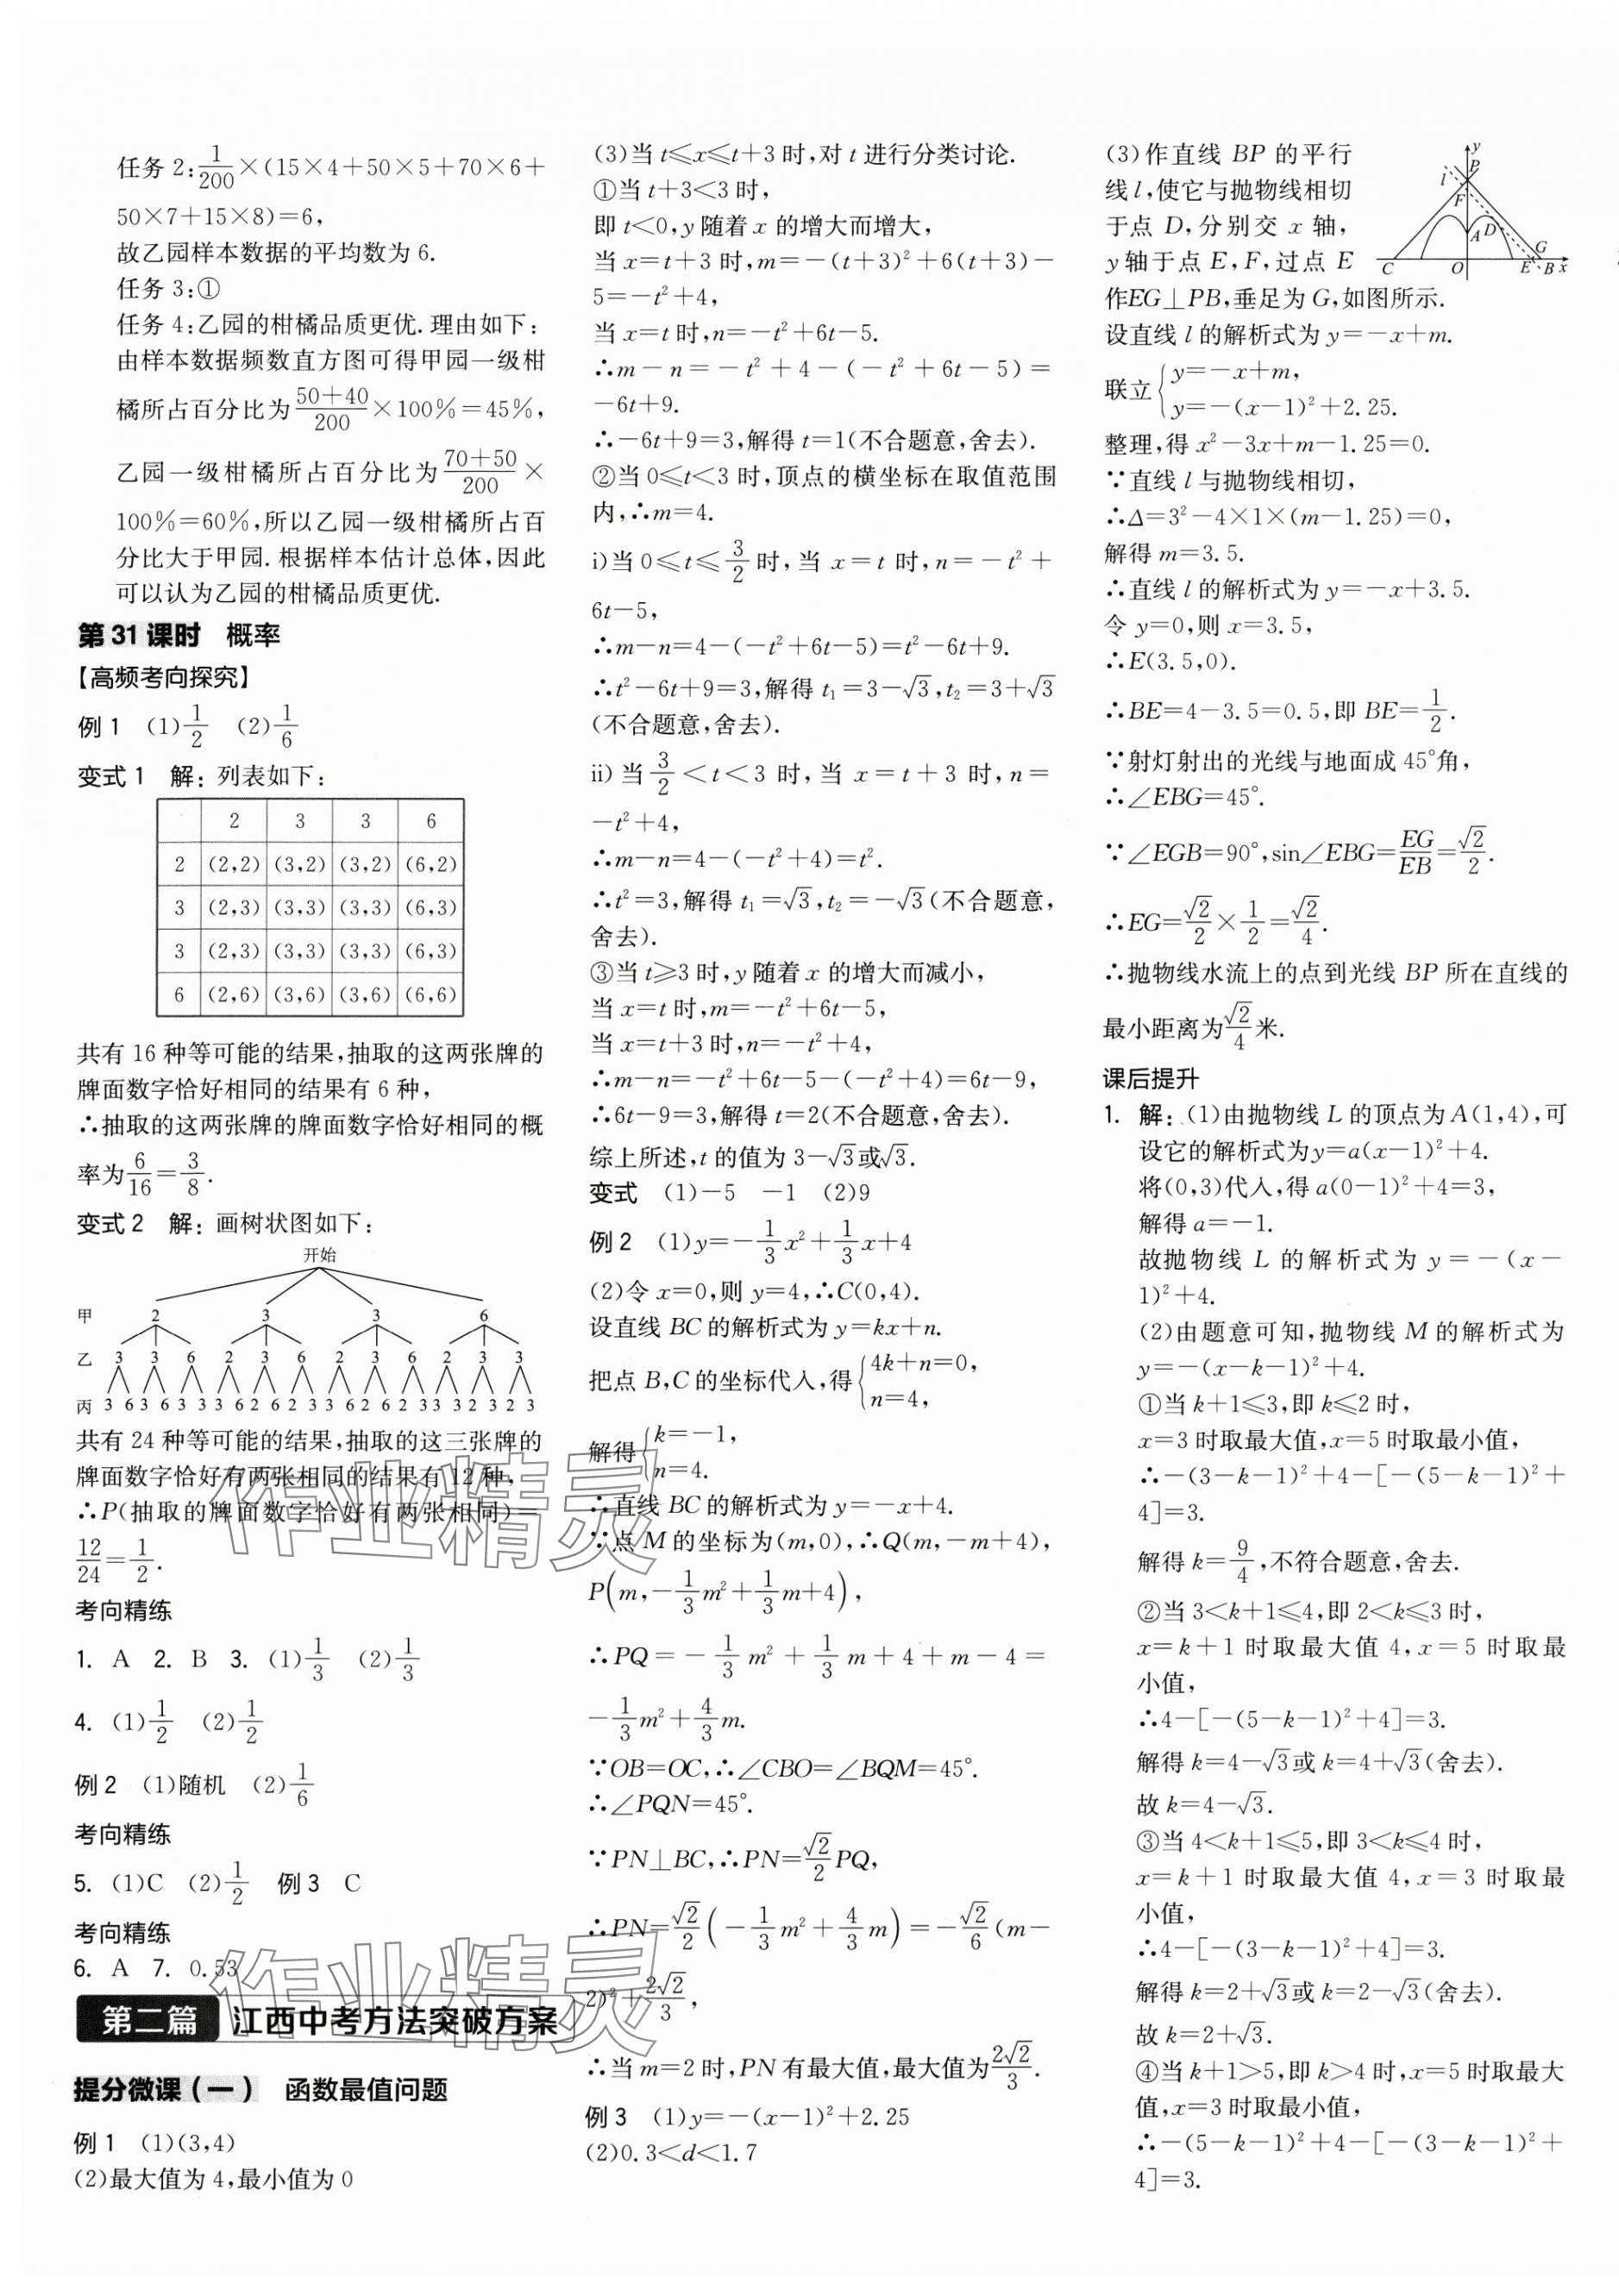 任务 2:1/200×(15×4+50×5+70×6+
50×7+15×8)=6,
故乙园样本数据的平均数为 6.
任务 3:①
任务 4:乙园的柑橘品质更优.理由如下:
由样本数据频数直方图可得甲园一级柑
橘所占百分比为(50+40)/200×100%=45%,
乙园一级柑橘所占百分比为(70+50)/200×
100%=60%,所以乙园一级柑橘所占百
分比大于甲园.根据样本估计总体,因此
可以认为乙园的柑橘品质更优.
第 31 课时 概率
【高频考向探究】
例 1 (1)1/2 (2)1/6
变式 1 解:列表如下:
2 3 3 6
2 (2,2) (3,2) (3,2) (6,2)
3 (2,3) (3,3) (3,3) (6,3)
3 (2,3) (3,3) (3,3) (6,3)
6 (2,6) (3,6) (3,6) (6,6)
共有 16 种等可能的结果,抽取的这两张牌的
牌面数字恰好相同的结果有 6 种,
∴抽取的这两张牌的牌面数字恰好相同的概
率为6/16=3/8.
变式 2 解:画树状图如下:
开始
甲 2 3 3 6
乙 3 3 6 2 3 6 2 3 6 2 3 3
丙 3 6 3 6 3 3 3 6 2 6 2 3 3 6 2 6 2 3 3 3 2 3 2 3
共有 24 种等可能的结果,抽取的这三张牌的
牌面数字恰好有两张相同的结果有 12 种,
∴P(抽取的牌面数字恰好有两张相同)=
12/24=1/2.
考向精练
1. A 2. B 3. (1)1/3 (2)1/3
4. (1)1/2 (2)1/2
例 2 (1)随机 (2)1/6
考向精练
5. (1)C (2)1/2 例 3 C
考向精练
6. A 7. 0.53
第二篇 江西中考方法突破方案
提分微课(一) 函数最值问题
例 1 (1)(3,4)
(2)最大值为 4,最小值为 0
(3)当 t≤x≤t+3 时,对 t 进行分类讨论.
①当 t+3<3 时,
即 t<0,y 随着 x 的增大而增大,
当 x=t+3 时,m=-(t+3)²+6(t+3)-
5=-t²+4,
当 x=t 时,n=-t²+6t-5.
∴m-n=-t²+4-(-t²+6t-5)=
-6t+9.
∴-6t+9=3,解得 t=1(不合题意,舍去).
②当 0≤t<3 时,顶点的横坐标在取值范围
内,∴m=4.
i)当 0≤t≤3/2时,当 x=t 时,n=-t²+
6t-5,
∴m-n=4-(-t²+6t-5)=t²-6t+9.
∴t²-6t+9=3,解得 t₁=3-√3,t₂=3+√3
(不合题意,舍去).
ii)当3/2<t<3 时,当 x=t+3 时,n=
-t²+4,
∴m-n=4-(-t²+4)=t².
∴t²=3,解得 t₁=√3,t₂=-√3(不合题意,
舍去).
③当 t≥3 时,y 随着 x 的增大而减小,
当 x=t 时,m=-t²+6t-5,
当 x=t+3 时,n=-t²+4,
∴m-n=-t²+6t-5-(-t²+4)=6t-9,
∴6t-9=3,解得 t=2(不合题意,舍去).
综上所述,t 的值为 3-√3或√3.
变式 (1)-5 -1 (2)9
例 2 (1)y=-1/3x²+1/3x+4
(2)令 x=0,则 y=4,∴C(0,4).
设直线 BC 的解析式为 y=kx+n.
把点 B,C 的坐标代入,得{4k+n=0,
n=4,
解得{k=-1,
n=4.
∴直线 BC 的解析式为 y=-x+4.
∵点 M 的坐标为(m,0),∴Q(m,-m+4),
P(m,-1/3m²+1/3m+4),
∴PQ=-1/3m²+1/3m+4+m-4=
-1/3m²+4/3m.
∵OB=OC,∴∠CBO=∠BQM=45°.
∴∠PQN=45°.
∵PN⊥BC,∴PN=√2/2PQ,
∴PN=√2/2(-1/3m²+4/3m)=-√2/6(m-
2)²+2√2/3,
∴当 m=2 时,PN 有最大值,最大值为2√2/3.
例 3 (1)y=-(x-1)²+2.25
(2)0.3<d<1.7
(3)作直线 BP 的平行
线 l,使它与抛物线相切
于点 D,分别交 x 轴,
y 轴于点 E,F,过点 E
作EG⊥PB,垂足为 G,如图所示.
y
P
l
F
A D
G
C O E B x
设直线 l 的解析式为 y=-x+m.
联立{y=-x+m,
y=-(x-1)²+2.25.
整理,得 x²-3x+m-1.25=0.
∵直线 l 与抛物线相切,
∴Δ=3²-4×1×(m-1.25)=0,
解得 m=3.5.
∴直线 l 的解析式为 y=-x+3.5.
令 y=0,则 x=3.5,
∴E(3.5,0).
∴BE=4-3.5=0.5,即 BE=1/2.
∵射灯射出的光线与地面成 45°角,
∴∠EBG=45°.
∵∠EGB=90°,sin∠EBG=EG/EB=√2/2.
∴EG=√2/2×1/2=√2/4.
∴抛物线水流上的点到光线 BP 所在直线的
最小距离为√2/4米.
课后提升
1. 解:(1)由抛物线 L 的顶点为 A(1,4),可
设它的解析式为y=a(x-1)²+4.
将(0,3)代入,得 a(0-1)²+4=3,
解得 a=-1.
故抛物线 L 的解析式为 y=-(x-
1)²+4.
(2)由题意可知,抛物线 M 的解析式为
y=-(x-k-1)²+4.
①当 k+1≤3,即 k≤2 时,
x=3 时取最大值,x=5 时取最小值,
∴-(3-k-1)²+4-[-(5-k-1)²+
4]=3.
解得 k=9/4,不符合题意,舍去.
②当 3<k+1≤4,即 2<k≤3 时,
x=k+1 时取最大值 4,x=5 时取最
小值,
∴4-[-(5-k-1)²+4]=3.
解得 k=4-√3或 k=4+√3(舍去).
故 k=4-√3.
③当 4<k+1≤5,即 3<k≤4 时,
x=k+1 时取最大值 4,x=3 时取最
小值,
∴4-[-(3-k-1)²+4]=3.
解得 k=2+√3或 k=2-√3(舍去).
故 k=2+√3.
④当 k+1>5,即 k>4 时,x=5 时取最大
值,x=3 时取最小值,
∴-(5-k-1)²+4-[-(3-k-1)²+
4]=3.
作业精灵
作业精灵